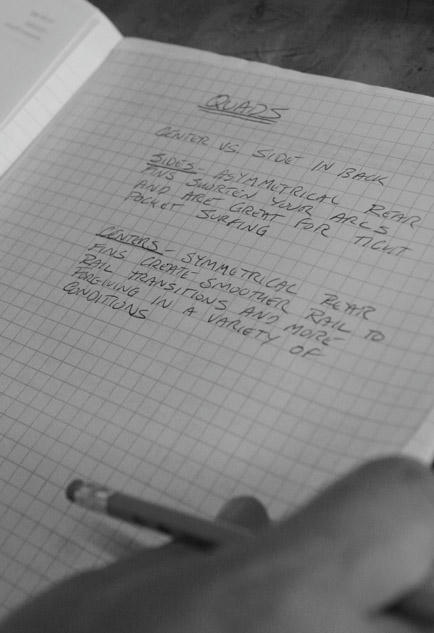 QUADS
CENTER VS. SIDE IN BACK
SIDES - ASYMMETRICAL REAR
FINS SHORTEN YOUR ARCS
AND ARE GREAT FOR TIGHT
POCKET SURFING
CENTERS - SYMMETRICAL REAR
FINS CREATE SMOOTHER RAIL TO
RAIL TRANSITIONS AND MORE
FORGIVING IN A VARIETY OF
CONDITIONS